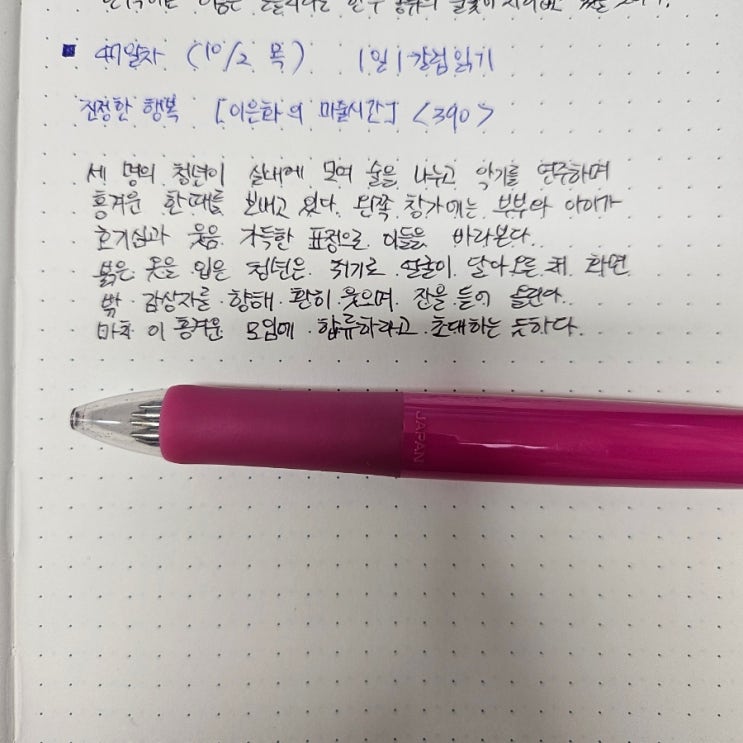 ■ 4일차 (10/2 목) 1일 1칼럼읽기
진정한 행복 [이은화의 미술시간] <390>
세 명의 청년이 실내에 모여 술을 나누고 악기를 연주하며
흥겨운 한때를 보내고 있다. 왼쪽 창가에는 부부와 아이가
호기심과 웃음 가득한 표정으로 이들을 바라본다.
붉은 옷을 입은 청년은 취기로 얼굴이 달아오른 채 화면
밖 감상자를 향해 환히 웃으며 잔을 들어 올린다.
마치 이 흥겨운 모임에 합류하라고 초대하는 듯하다.
JAPAN